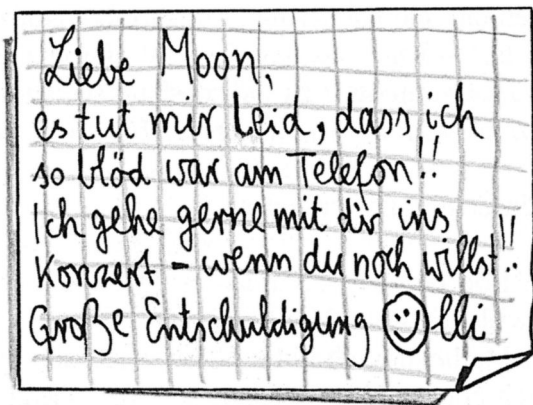 Liebe Moon,
es tut mir Leid, dass ich
so blöd war am Telefon!!
Ich gehe gerne mit dir ins
Konzert - wenn du noch willst!!
Große Entschuldigung ☺lli